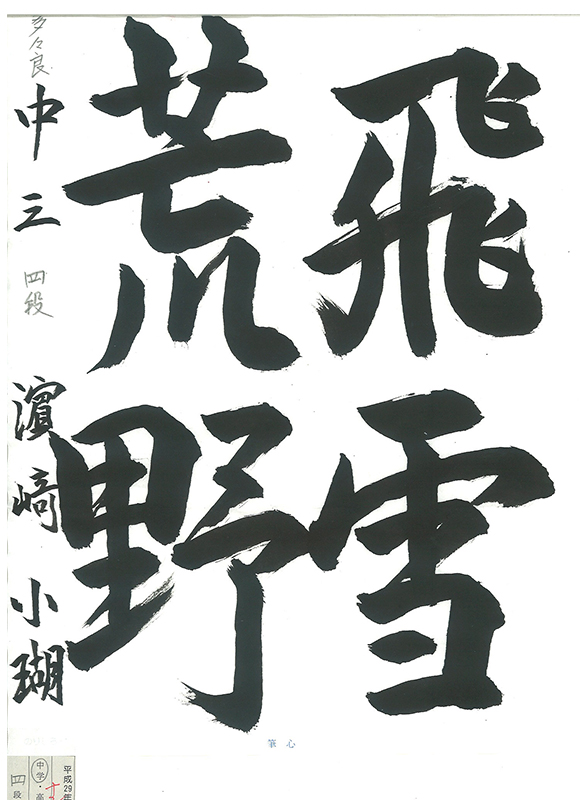 飛雪
荒野
多々良
中三
四段
濵﨑小瑚
筆心
平成29年
中学・高
四段